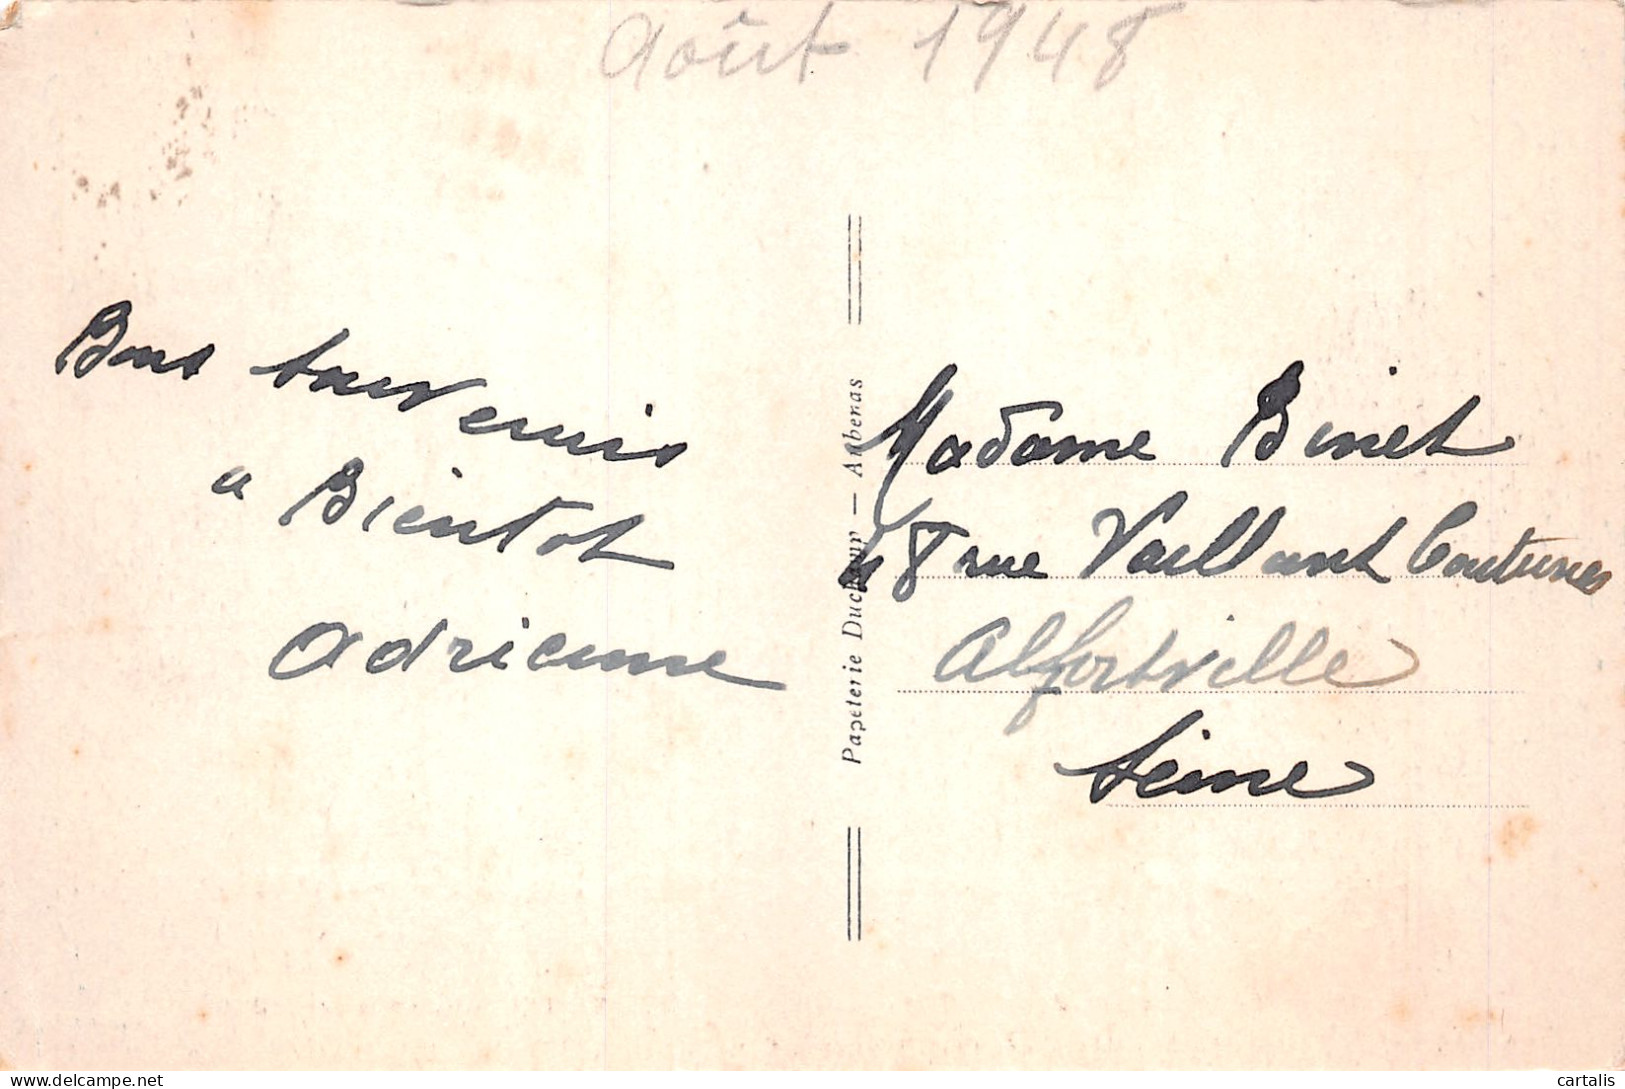 Août 1948
Bons souvenirs
a Bientot
Adrienne
Papeterie Duchamp — Aubenas
Madame Binet
48 rue Vaillant Couturier
Alfortville
Seine
https://www.delcampe.net
cartalis